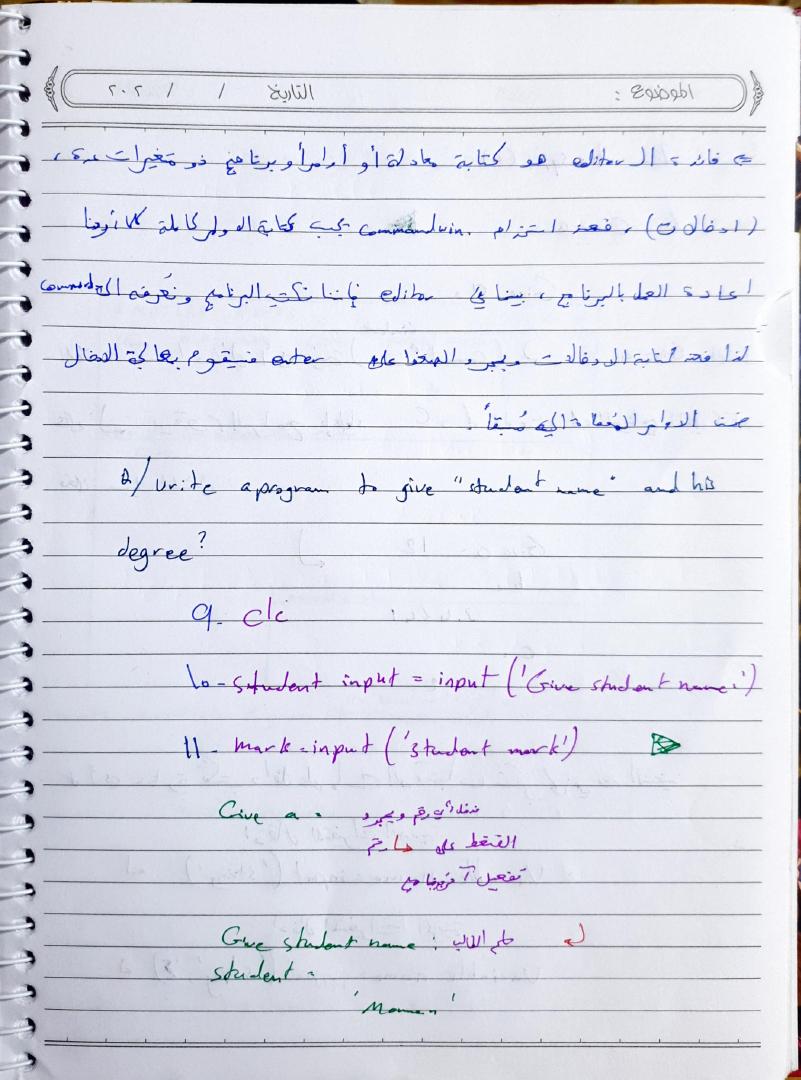 الموضوع : التاريخ / / ٢٠٢
⇐ فائدة الـ editor هو كتابة معادلة أو أوامر أو برنامج ذو متغيرات عدة ،
(ادخالات) ، فعند استخدام commandwin. يجب كتابة الاوامر كاملة كلما أردنا
اعادة العمل بالبرنامج ، بينما في editor فإننا نكتب البرنامج ونعرفه الى
لذا فعند كتابة الادخالات وبمجرد الضغط على enter فسيقوم بمعالجة الادخال
ضمن الاوامر المُعطاة اليه مُسبقاً .
Q/ write a program to give "student name" and his
degree?
9- clc
10- student input = input ('Give student name:')
11- mark = input ('student mark')
Give a = رقم وبمجرد
على
تفعيل
Give student name :
student =